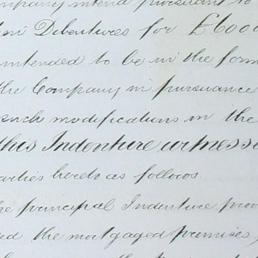 Company intend pursuant to
Debentures for £6000
intended to be in the form
the Company in pursuance
such modifications in the
this Indenture witnesse
parties hereto as follows
the principal Indenture prov
the mortgaged premises